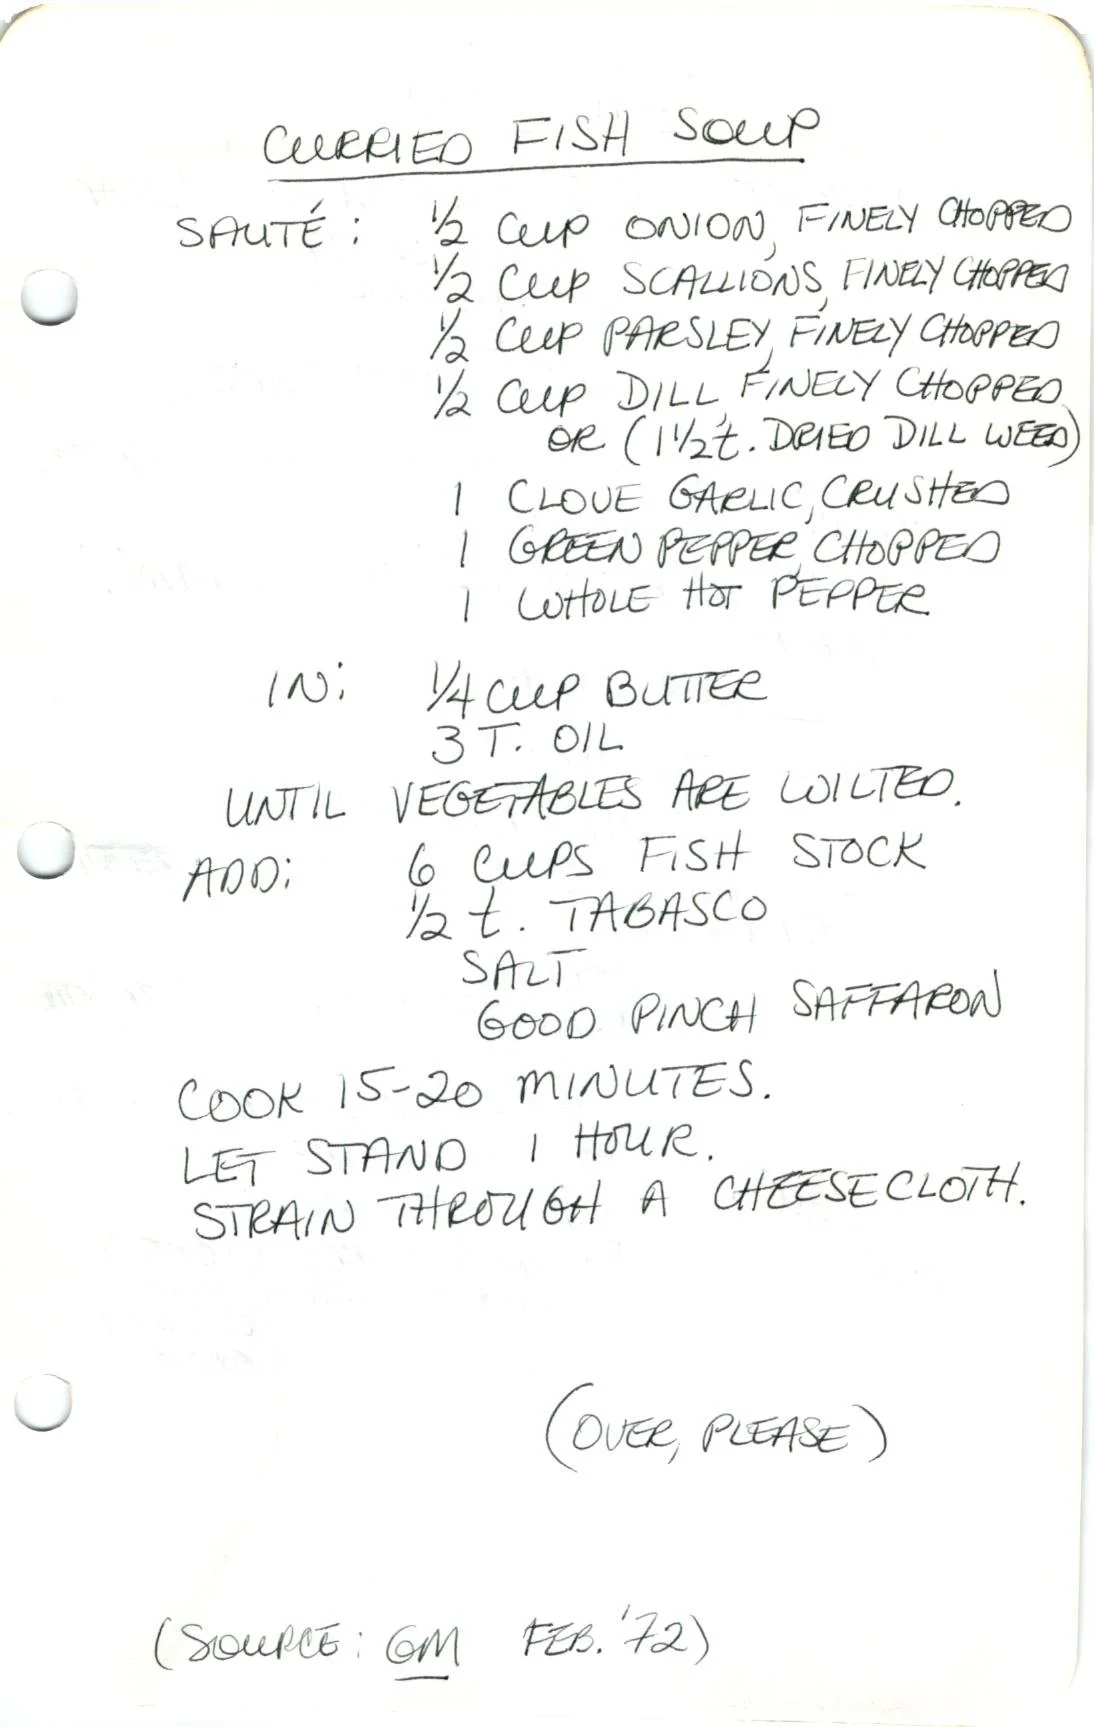 CURRIED FISH SOUP
SAUTÉ: ½ CUP ONION, FINELY CHOPPED
½ CUP SCALLIONS, FINELY CHOPPED
½ CUP PARSLEY, FINELY CHOPPED
½ CUP DILL, FINELY CHOPPED
OR (1½ t. DRIED DILL WEED)
1 CLOVE GARLIC, CRUSHED
1 GREEN PEPPER, CHOPPED
1 WHOLE HOT PEPPER
IN: ¼ CUP BUTTER
3 T. OIL
UNTIL VEGETABLES ARE WILTED.
ADD: 6 CUPS FISH STOCK
½ t. TABASCO
SALT
GOOD PINCH SAFFARON
COOK 15-20 MINUTES.
LET STAND 1 HOUR.
STRAIN THROUGH A CHEESECLOTH.
(OVER, PLEASE)
(SOURCE: GM FEB. '72)